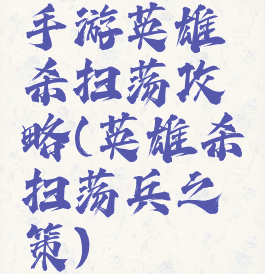 手游英雄
杀扫荡攻
略(英雄杀
扫荡兵之
策)